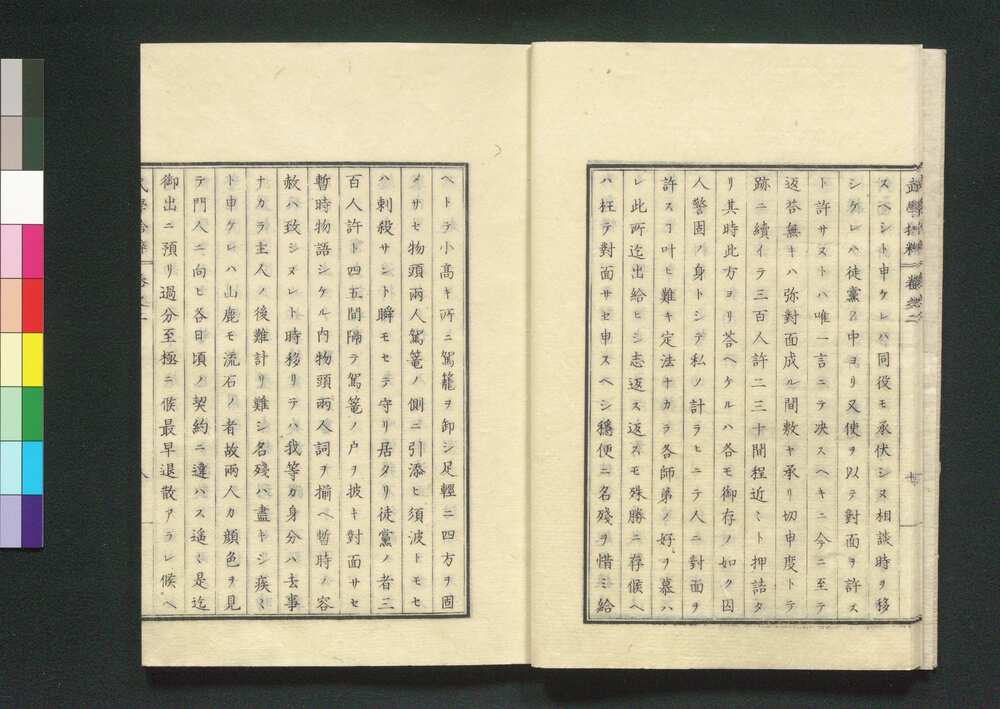 スヘシト申ケレハ同役モ承伏シヌ相談時ヲ移
シケレハ徒黨ノ中ヨリ又使ヲ以テ對面ヲ許ス
ト許サストハ唯一言ニテ决スヘキニ今ニ至テ
返荅無キハ弥對面成ル間敷ヤ承リ切申度トテ
跡ニ續イテ三百人許二三十間程近ミト押詰タ
リ其時此方ヨリ答ヘケルハ各モ御存ノ如ク囚
人警固ノ身トシテ私ノ計ラヒニテ人ニ對面ヲ
許スヿ叶ヒ難キ定法ナカラ各師弟ノ好ヲ慕ハ
レ此所迄出給ヒシ志返ス返スモ殊勝ニ存候ヘ
ハ枉テ對面サセ申スヘシ穩便ニ名殘ヲ惜ミ給
ヘトテ小高キ所ニ駕籠ヲ卸シ足輕ニ四方ヲ固
メサセ物頭兩人駕篭ノ側ニ引添ヒ須波トモセ
ハ刺殺サント瞬モセテ守リ居タリ徒黨ノ者三
百人許ト四五間隔テ駕篭ノ户ヲ披キ對面サセ
暫時物語シケル内物頭兩人詞ヲ揃ヘ暫時ノ容
赦ハ致シヌレト時移リテハ我等カ身分ハ去事
ナカラ主人ノ後難計リ難シ名殘ハ盡ヤシ疾ミ
ト申ケレハ山鹿モ流石ノ者故兩人カ顔色ヲ見
テ門人ニ向ヒ各日頃ノ契約ニ違ハス遥ミ是迄
御出ニ預リ過分至極ニ候最早退散アラレ候ヘ